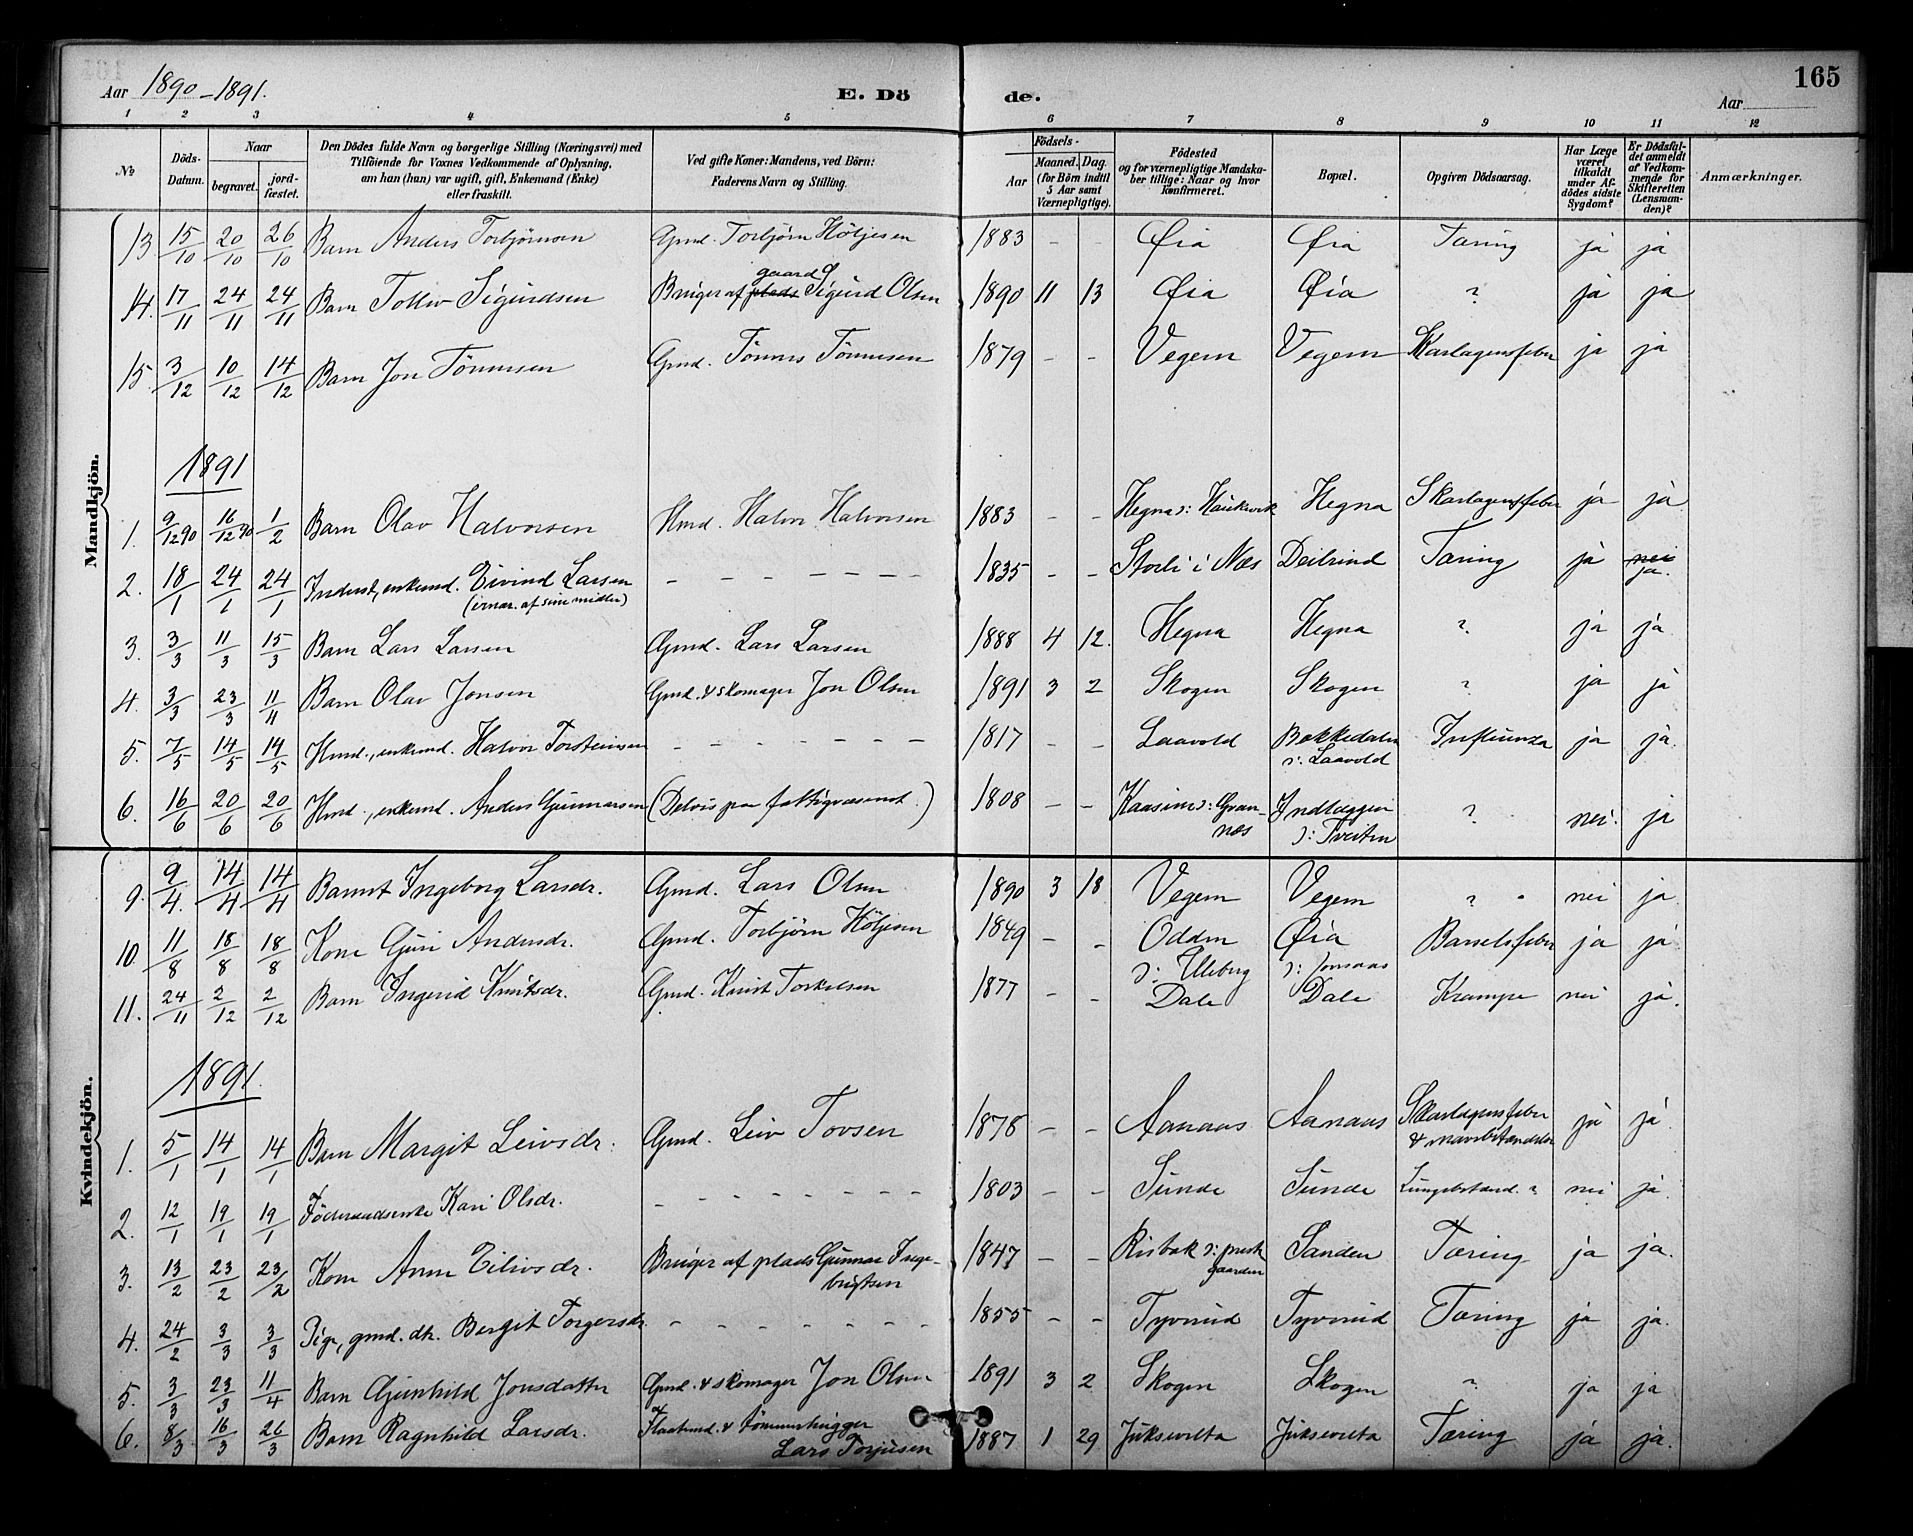 Aar 1890-1891. E. Dö de. Aar 165
1 2 3 4 5 6 7 8 9 10 11 12
№ Döds-Datum. Naar begravet. jord-fæstet. Den Dödes fulde Navn og borgerlige Stilling (Næringsvei) med Tilföiende for Voxnes Vedkommende af Oplysning, om han (hun) var ugift, gift, Enkemand (Enke) eller fraskilt. Ved gifte Koner: Mandens, ved Börn: Faderens Navn og Stilling. Födsels- Aar Maaned. Dag. (for Börn indtil 5 Aar samt Værnepligtige). Födested og for værnepligtige Mandskaber tillige: Naar og hvor Konfirmeret. Bopæl. Opgiven Dödsaarsag. Har Læge været tilkaldt under Afdödes sidste Sygdom? Er Dödsfaldet anmeldt af Vedkommende for Skifteretten (Lensmanden)? Anmærkninger.
Mandkjön.
13 15/10 20/10 26/10 Barn Anders Torbjörnsen Gmd. Torbjörn Höljesen 1883 - - Øia Øia Tæring ja ja
14. 17/11 24/11 24/11 Barn Tollev Sigurdsen Bruger af plads gaard Sigurd Olsen 1890 11 13 Øia Øia ? ja ja
15. 3/12 10/12 14/12 Barn Jon Tönnesen Gmd. Tönnes Tönnesen 1879 - - Vegem Vegem Skarlagensfeber ja ja
1891
1. 9/12 90 16/12 90 1/2 Barn Olav Halvorsen Hmd. Halvor Halvorsen 1883 - - Hegna ɔ: Haukvik Hegna Skarlagensfeber ja ja
2. 18/1 24/1 24/1 Inderst, enkemd. Eivind Larsen - - - - - - - 1835 - - Storli i Næs Deilrind Tæring ja nei ja.
(ernær. af sine midler)
3. 3/3 11/3 15/3 Barn Lars Larsen Gmd. Lars Larsen 1888 4 12. Hegna Hegna ? ja ja
4. 3/3 23/3 11/11 Barn Olav Jonsen Gmd. & skomager Jon Olsen 1891 3 2 Skogen Skogen ? ja ja
5. 7/5 14/5 14/5 Hmd., enkemd. Halvor Torsteinsen - - - - - - - 1817 - - Laavold Bakkedalen ɔ: Laavold Influenza ja ja.
6. 16/6 20/6 20/6 Hmd., enkemd. Anders Gunnarsen (Delvis paa fattigvæsenet.) 1808 - - Kaasin ɔ: Grannæs Indlæggen ɔ: Tveiten ? nei. ja
Kvindekjön.
9. 9/4. 14/4 14/4 Barnet Ingeborg Larsdr. Gmd. Lars Olsen 1890 3 18 Vegem Vegem ? nei ja
10. 11/8 18/8 18/8 Kone Guri Andersdr. Gmd. Torbjörn Höljesen 1849 - - Odden ɔ: Ulleberg Øia ɔ: Jonsaas Barselsfeber ja ja
11. 24/11 2/12 2/12 Barn Ingerid Knutsdr. Gmd. Knut Torkelsen 1877 - - Dale Dale Krampe nei ja.
1891.
1. 5/1 14/1 14/1 Barn Margit Leivsdr. Gmd. Leiv Tovsen 1878 - - Aanaas Aanaas Skarlagensfeber & nyrebetændelse ja ja.
2. 12/1 19/1 19/1 Föderaadsenke Kari Olsdr. - - - - - - - - 1803 - - Sunde Sunde Lungebetænd. ? nei ja.
3. 13/2 23/2 23/2 Kone Anne Eilivsdr. Bruger af plads Gunnar Ingebrigtsen 1847 - - Risbak ɔ: prestgaarden Sanden Tæring ja ja.
4. 24/2 3/3 3/3 Pige, gmd. dtr. Bergit Torgersdr. - - - - - - - 1855 - - Tyvrud Tyvrud Tæring ja ja.
5. 3/3 23/3 11/4 Barn Gunhild Jonsdatter Gmd. & skomager Jon Olsen 1891 3 2 Skogen Skogen ? ja ja
6. 8/3 16/3 26/3 Barn Ragnhild Larsdr. & tömmerhugger Lars Torjusen 1887 1 29 Juksevelta Juksevelta Tæring ja ja.